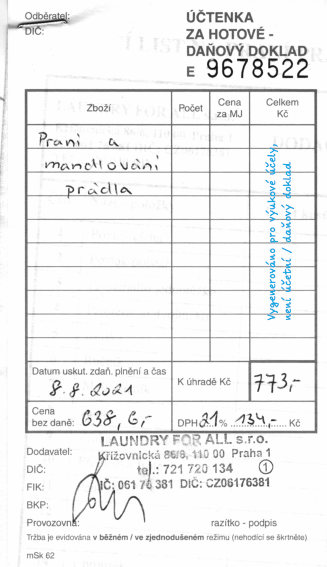 Odběratel:
DIČ:
ÚČTENKA
ZA HOTOVÉ -
DAŇOVÝ DOKLAD
E 9678522
Zboží
Počet
Cena
za MJ
Celkem
Kč
Praní a
mandlování
prádla
Vygenerováno pro výukové účely,
není účetní / daňový doklad
Datum uskut. zdaň. plnění a čas
8.8.2021
K úhradě Kč
773,-
Cena
bez daně: 638,6,-
DPH 21% 134,- Kč
LAUNDRY FOR ALL s.r.o.
Dodavatel:
Křižovnická 86/6, 110 00 Praha 1
DIČ:
tel.: 721 720 134 1
FIK:
IČ: 061 76 381 DIČ: CZ06176381
BKP:
Provozovna:
razítko - podpis
Tržba je evidována v běžném / ve zjednodušeném režimu (nehodící se škrtněte)
mSk 62